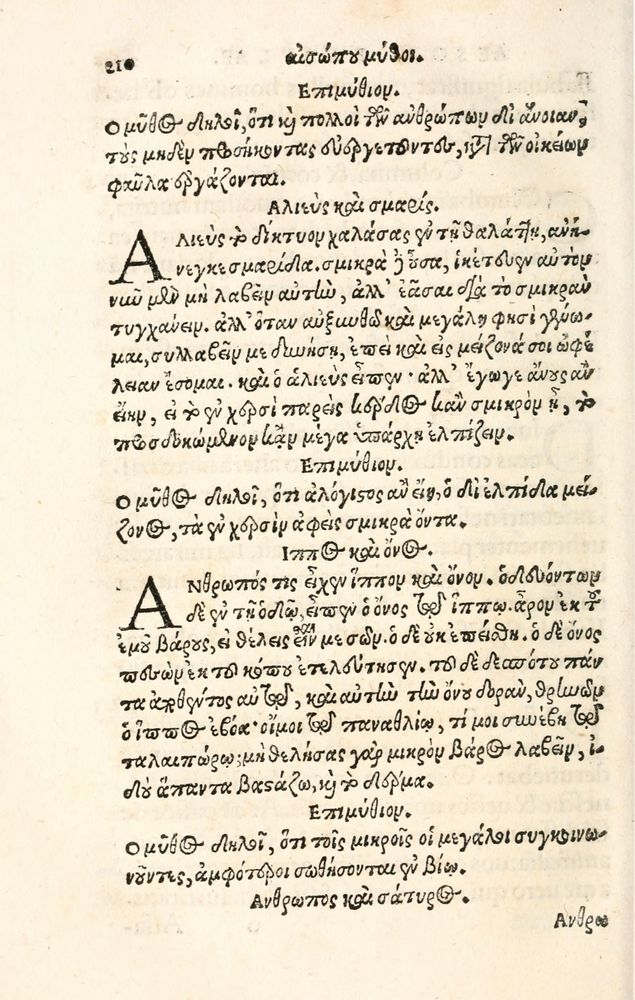 210 αἰσώπου μῦθοι.
Επιμύθιον.
Ο μῦθος δηλοῖ, ὅτι καὶ πολλοὶ τῶν ἀνθρώπων δι' ἄνοιαν,
τοὺς μηδὲν προσήκοντας εὐεργετοῦντες, κατὰ τῶν οἰκείων
φαῦλα ἐργάζονται.
Αλιεὺς καὶ σμαρίς.
Αλιεὺς τὸ δίκτυον χαλάσας ἐν τῇ θαλάττῃ, ἀνή-
νεγκε σμαρίδα. σμικρὰ δὲ οὖσα, ἱκέτευεν αὐτὸν
νῦν μὲν μὴ λαβεῖν αὐτὴν, ἀλλ' ἐᾶσαι διὰ τὸ σμικρὰν
τυγχάνειν. ἀλλ' ὅταν αὐξηνθῶ καὶ μεγάλη φησὶ γένω-
μαι, συλλαβεῖν με δυνήσῃ, ἐπεὶ καὶ εἰς μείζονά σοι ὠφέ
λειαν ἔσομαι. καὶ ὁ ἁλιεὺς εἶπεν· ἀλλ' ἔγωγε ἄνους ἂν
εἴην, εἰ τὸ ἐν χερσὶ παρεὶς κέρδος κἂν σμικρὸν ᾖ, τὸ
προσδοκώμενον κἂν μέγα ὑπάρχῃ ἐλπίζειν.
Επιμύθιον.
Ο μῦθος δηλοῖ, ὅτι ἀλόγιστος ἂν εἴη, ὁ δι' ἐλπίδα μεί-
ζονος, τὰ ἐν χερσὶν ἀφεὶς σμικρὰ ὄντα.
Ιππος καὶ ὄνος.
Ανθρωπός τις εἶχεν ἵππον καὶ ὄνον. ὁδευόντων
δὲ ἐν τῇ ὁδῷ, εἶπεν ὁ ὄνος τῷ ἵππῳ. ἆρον ἐκ τοῦ
ἐμοῦ βάρους, εἰ θέλεις εἶναί με σῶν. ὁ δὲ οὐκ ἐπείσθη. ὁ δὲ ὄνος
πεσὼν ἐκ τοῦ κόπου ἐτελεύτησεν. τοῦ δὲ δεσπότου πάν
τα ἐπιθέντος αὐτῷ, καὶ αὐτὴν τὴν ὄνου δορὰν, θρηνῶν
ὁ ἵππος ἐβόα· οἴμοι τῷ παναθλίῳ, τί μοι συνέβη τῷ
ταλαιπώρῳ; μὴ θελήσας γὰρ μικρὸν βάρος λαβεῖν, ἰ-
δοὺ ἅπαντα βαστάζω, καὶ τὸ δέρμα.
Επιμύθιον.
Ο μῦθος δηλοῖ, ὅτι τοῖς μικροῖς οἱ μεγάλοι συγκοινω-
νοῦντες, ἀμφότεροι σωθήσονται ἐν βίῳ.
Ανθρωπος καὶ σάτυρος.
Ανθρω